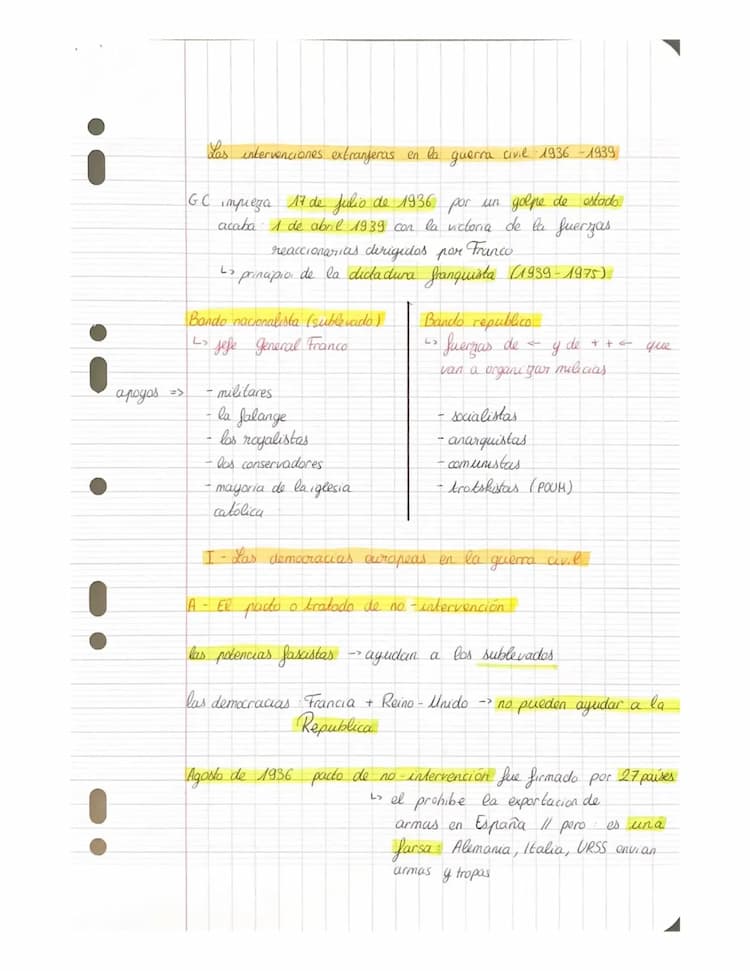 Las intervenciones extranjeras en la guerra civil 1936 - 1939
GC impieza 17 de Julio de 1936 por un golpe de estado
acaba 1 de abril 1939 con la victoria de la fuerzas
reaccionarias dirigidos por Franco
↳ principio de la dictadura franquista (1939-1975)
Bando nacionalista (sublevado)
↳ jefe general Franco
apoyos => - militares
- la falange
- los royalistas
- los conservadores
- mayoria de la iglesia
católica
Bando republico
↳ fuerzas de ← y de + + ← que
van a organizar milicias
- socialistas
- anarquistas
- comunistas
- trotskistas (POUM)
I - Las democracias europeas en la guerra civil
A - El pacto o tratado de no-intervención
las potencias fascistas → ayudan a los sublevados
las democracias : Francia + Reino-Unido → no pueden ayudar a la
Republica
Agosto de 1936 pacto de no-intervención fue firmado por 27 países
↳ el prohibe la exportacion de
armas en España // pero : es una
farsa : Alemania, Italia, URSS envian
armas y tropas